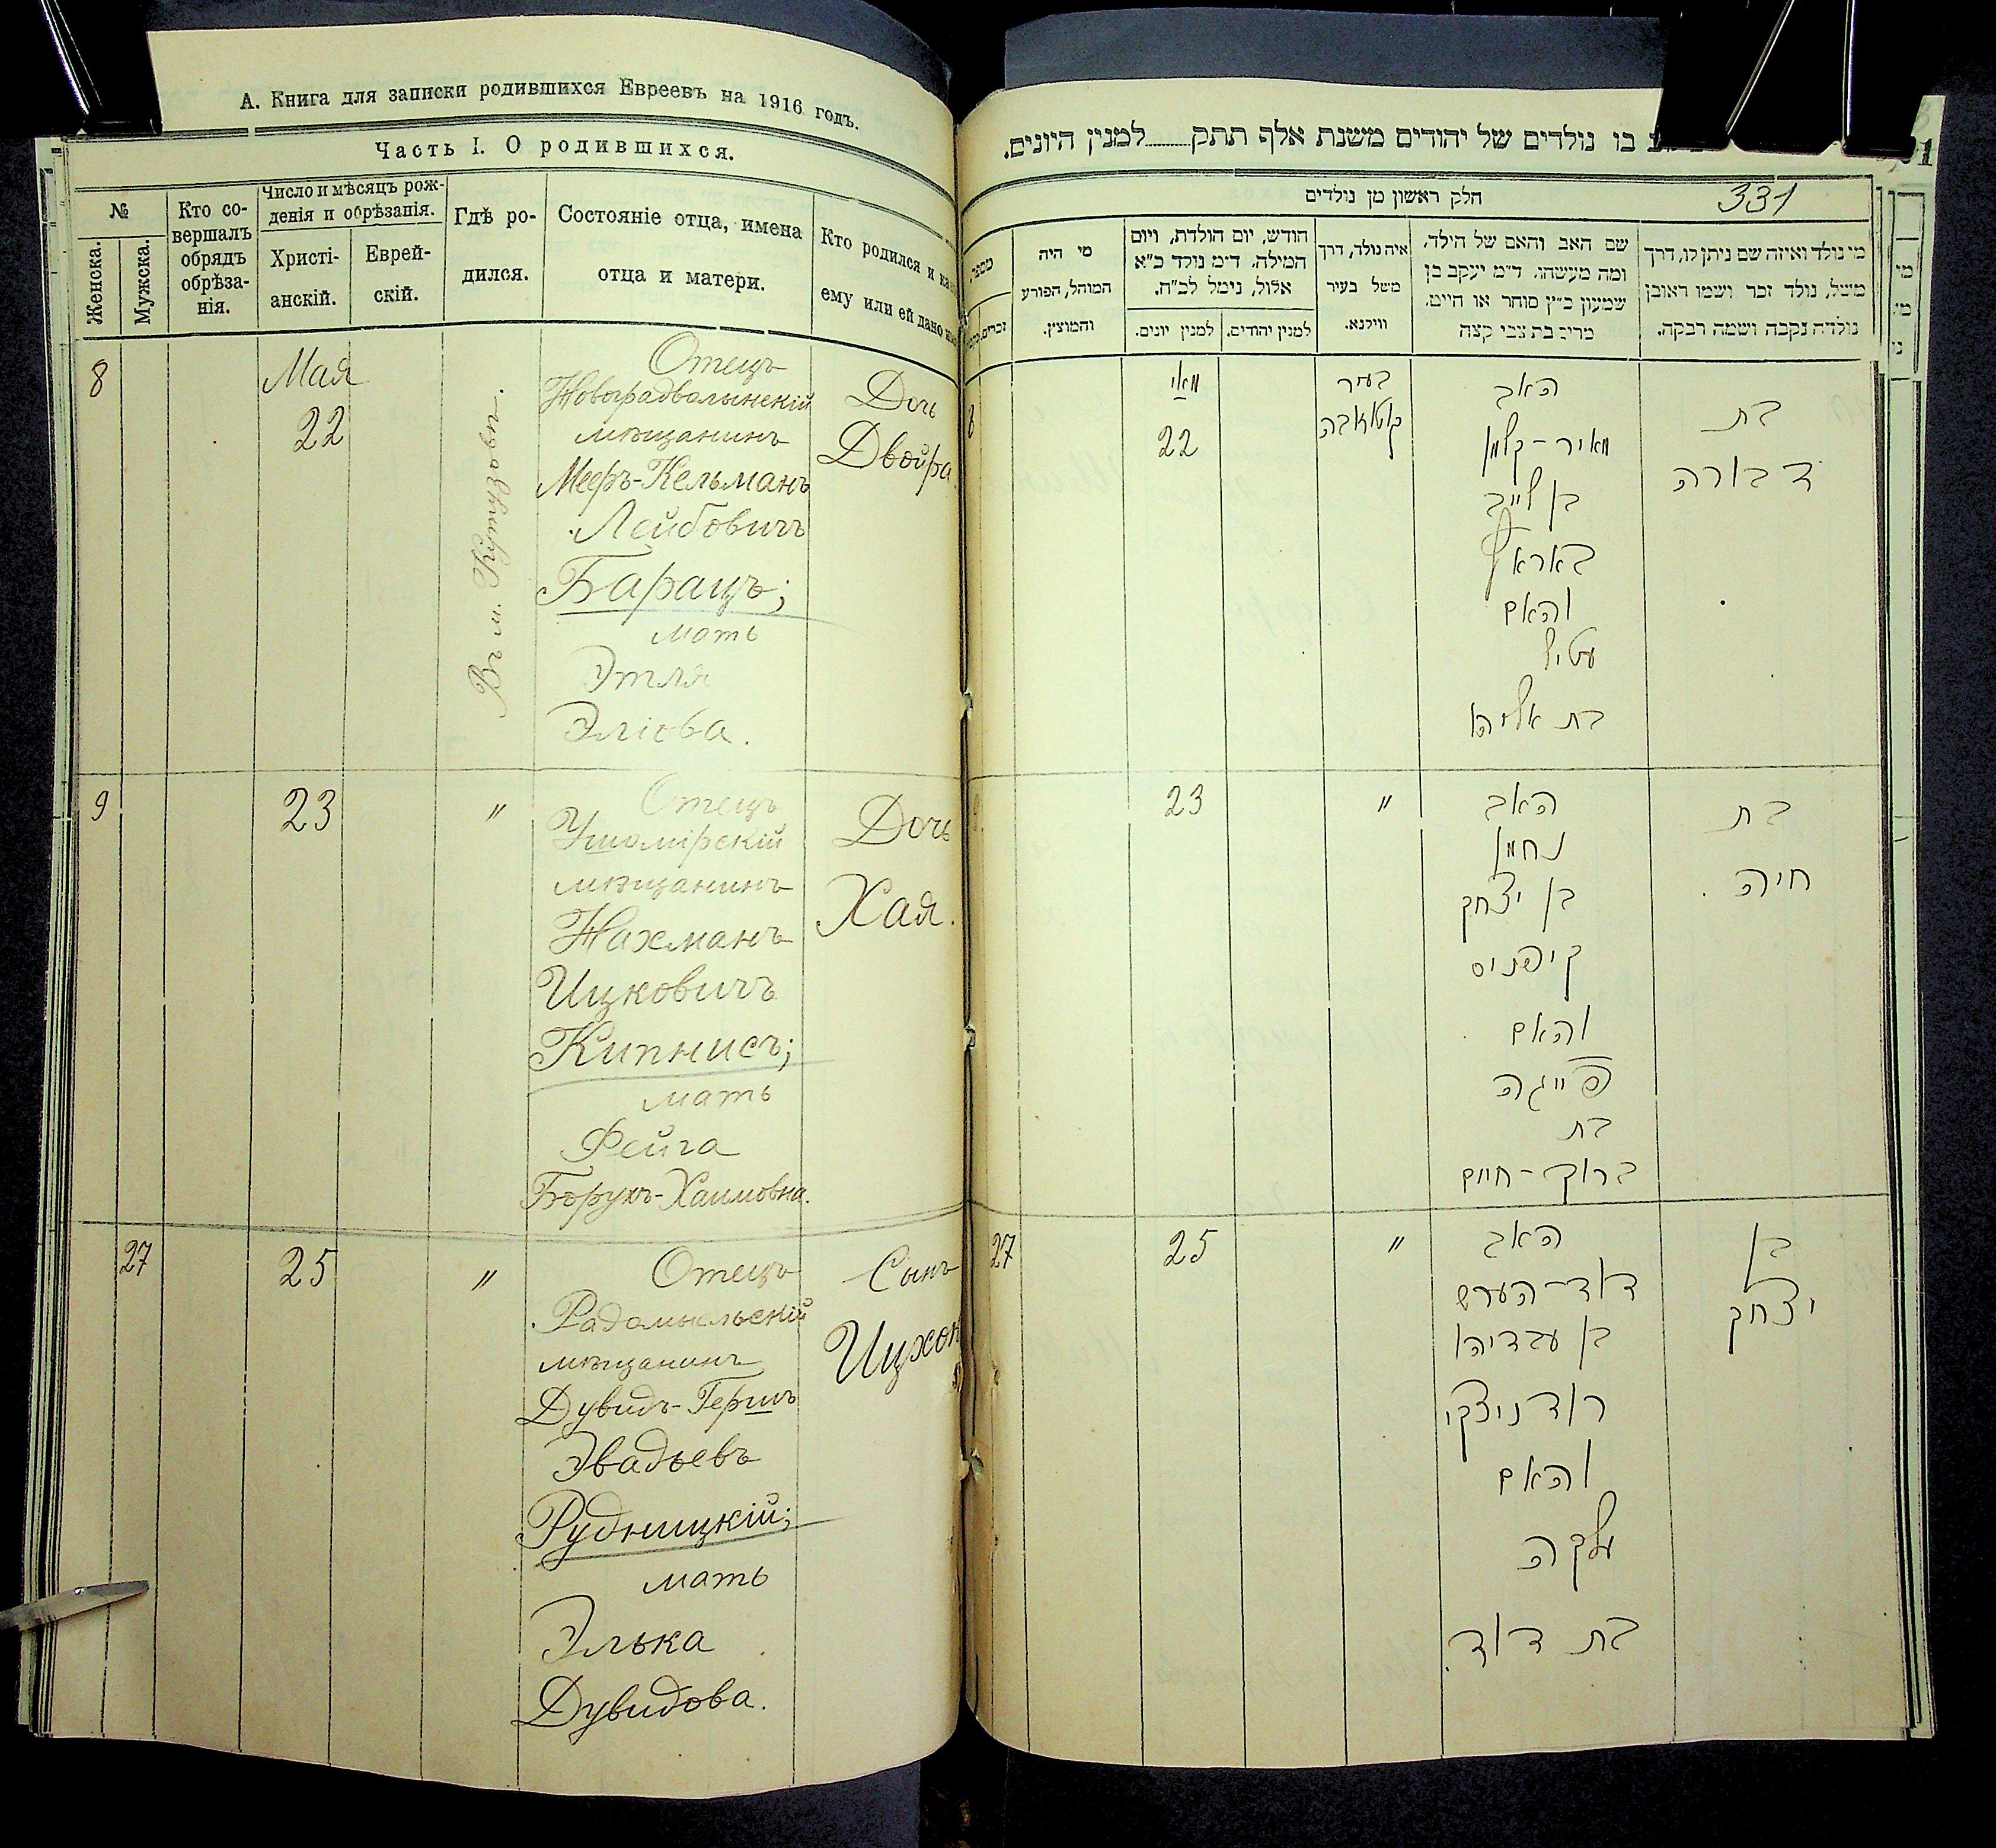 А. Книга для записки родившихся Евреевъ на 1916 годъ.
Часть I. О родившихся.
№
Женска.
Мужска.
Кто со-
вершалъ
обрядъ
обрѣза-
нія.
Число и мѣсяцъ рож-
денія и обрѣзанія.
Христі-
анскій.
Еврей-
скій.
Гдѣ ро-
дился.
Состояніе отца, имена
отца и матери.
Кто родился и
ему или ей дано
8
Мая
22
Въ м. Кутузовѣ.
Отецъ
Новоградволынскій
мѣщанинъ
Мееръ-Кельманъ
Лейбовичъ
Барацъ;
мать
Этля
Эліова.
Дочь
Двойра
9
23
"
Отецъ
Ушомірскій
мѣщанинъ
Нахманъ
Ицковичъ
Кипнисъ;
мать
Фейга
Борухъ-Хаимовна.
Дочь
Хая.
27
25
"
Отецъ
Радомысльскій
мѣщанинъ
Дувидъ-Гершъ
Эвадьевъ
Рудницкій;
мать
Элька
Дувидова.
Сынъ
Ицхок
בו נולדים של יהודים משנת אלף תתק......למנין היונים.
331
חלק ראשון מן נולדים
מספר
מי היה
המוהל, הפורע
והמוצץ.
חודש, יום הולדת, ויום
המילה. ד״מ נולד כ״א
אלול, נימל לכ״ח.
למנין יונים.
למנין יהודים.
איה נולד, דרך
משל בעיר
ווילנא.
שם האב והאם של הילד,
ומה מעשהו. ד״מ יעקב בן
שמעון כ״ץ סוחר או חייט,
מרים בת צבי קצה
מי נולד ואיזה שם ניתן לו, דרך
משל, נולד זכר ושמו ראובן
נולדה נקבה ושמה רבקה.
8
מאי
22
בעיר
האב
מאיר-קלמן
בן לייב
באראץ
והאם
עטיל
בת אליהו
בת
דבורה
23
"
האב
נחמן
בן יצחק
קיפניס
והאם
פייגה
בת
ברוך-חיים
בת
חיה.
27
25
"
האב
דוד-הערש
בן עבדיהו
רודניצקי
והאם
עלקה
בת דוד.
בן
יצחק